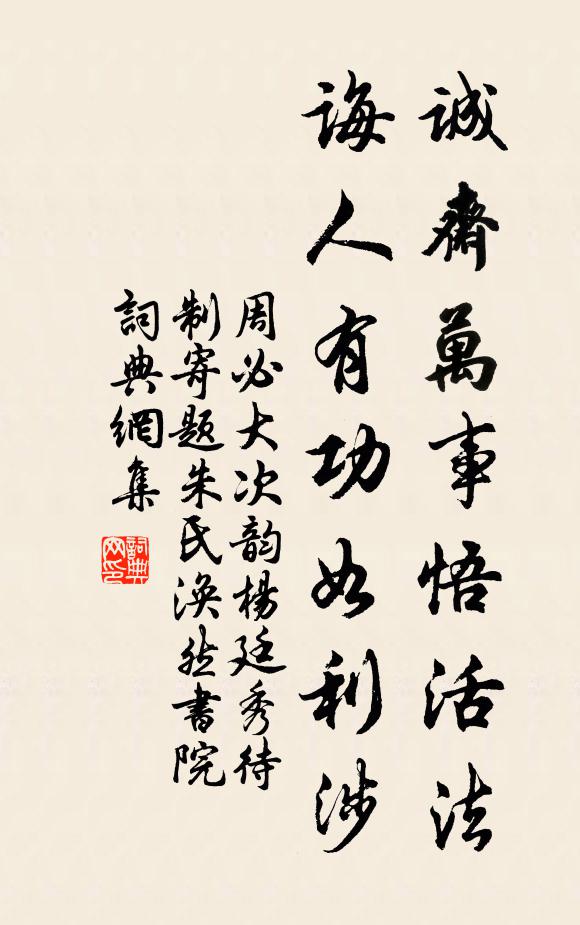 誠齋萬事悟活法
誨人有功如利涉
周必大次韵楊廷秀待
制寄題朱氏渙然書院
詞典網集
詞典
网印